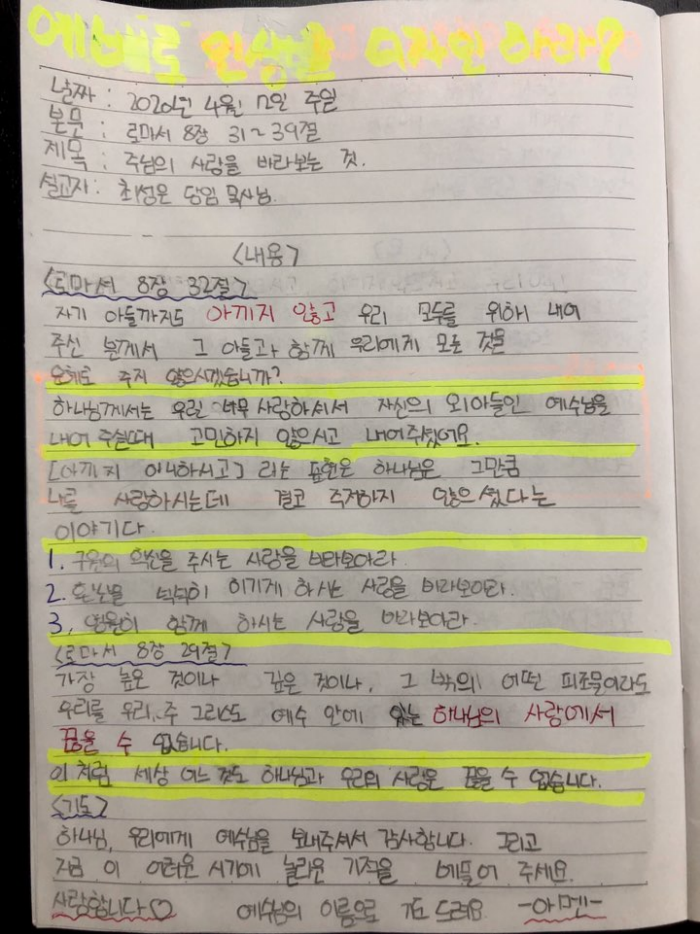 예배로 인생을 디자인 하라?
날짜 : 2020년 4월 12일 주일
본문 : 로마서 8장 31~39절
제목 : 주님의 사랑을 바라보는 것.
설교자 : 최성은 담임 목사님.
<내용>
<로마서 8장 32절>
자기 아들까지도 아끼지 않고 우리 모두를 위해 내어
주신 분께서 그 아들과 함께 우리에게 모든 것을
은혜로 주지 않으시겠습니까?
하나님께서는 우릴 너무 사랑하셔서 자신의 외아들인 예수님을
내어 주실때 고민하지 않으시고 내어주셨어요.
[아끼지 아니하시고] 라는 표현은 하나님은 그만큼
나를 사랑하시는데 결코 주저하지 않으셨다는
이야기다.
1. 구원의 확신을 주시는 사랑을 바라보아라.
2. 오늘을 넉넉히 이기게 하시는 사랑을 바라보아라.
3, 영원히 함께 하시는 사랑을 바라보아라.
<로마서 8장 29절>
가장 높은 것이나 깊은 것이나, 그 밖의 어떤 피조물이라도
우리를 우리 주 그리스도 예수 안에 있는 하나님의 사랑에서
끊을 수 없습니다.
이 처럼 세상 어느 것도 하나님과 우리의 사랑은 끊을 수 없습니다.
<기도>
하나님, 우리에게 예수님을 보내주셔서 감사합니다. 그리고
지금 이 어려운 시기에 놀라운 기적을 베들어 주세요.
사랑합니다♡ 예수님의 이름으로 기도 드려요. -아멘-